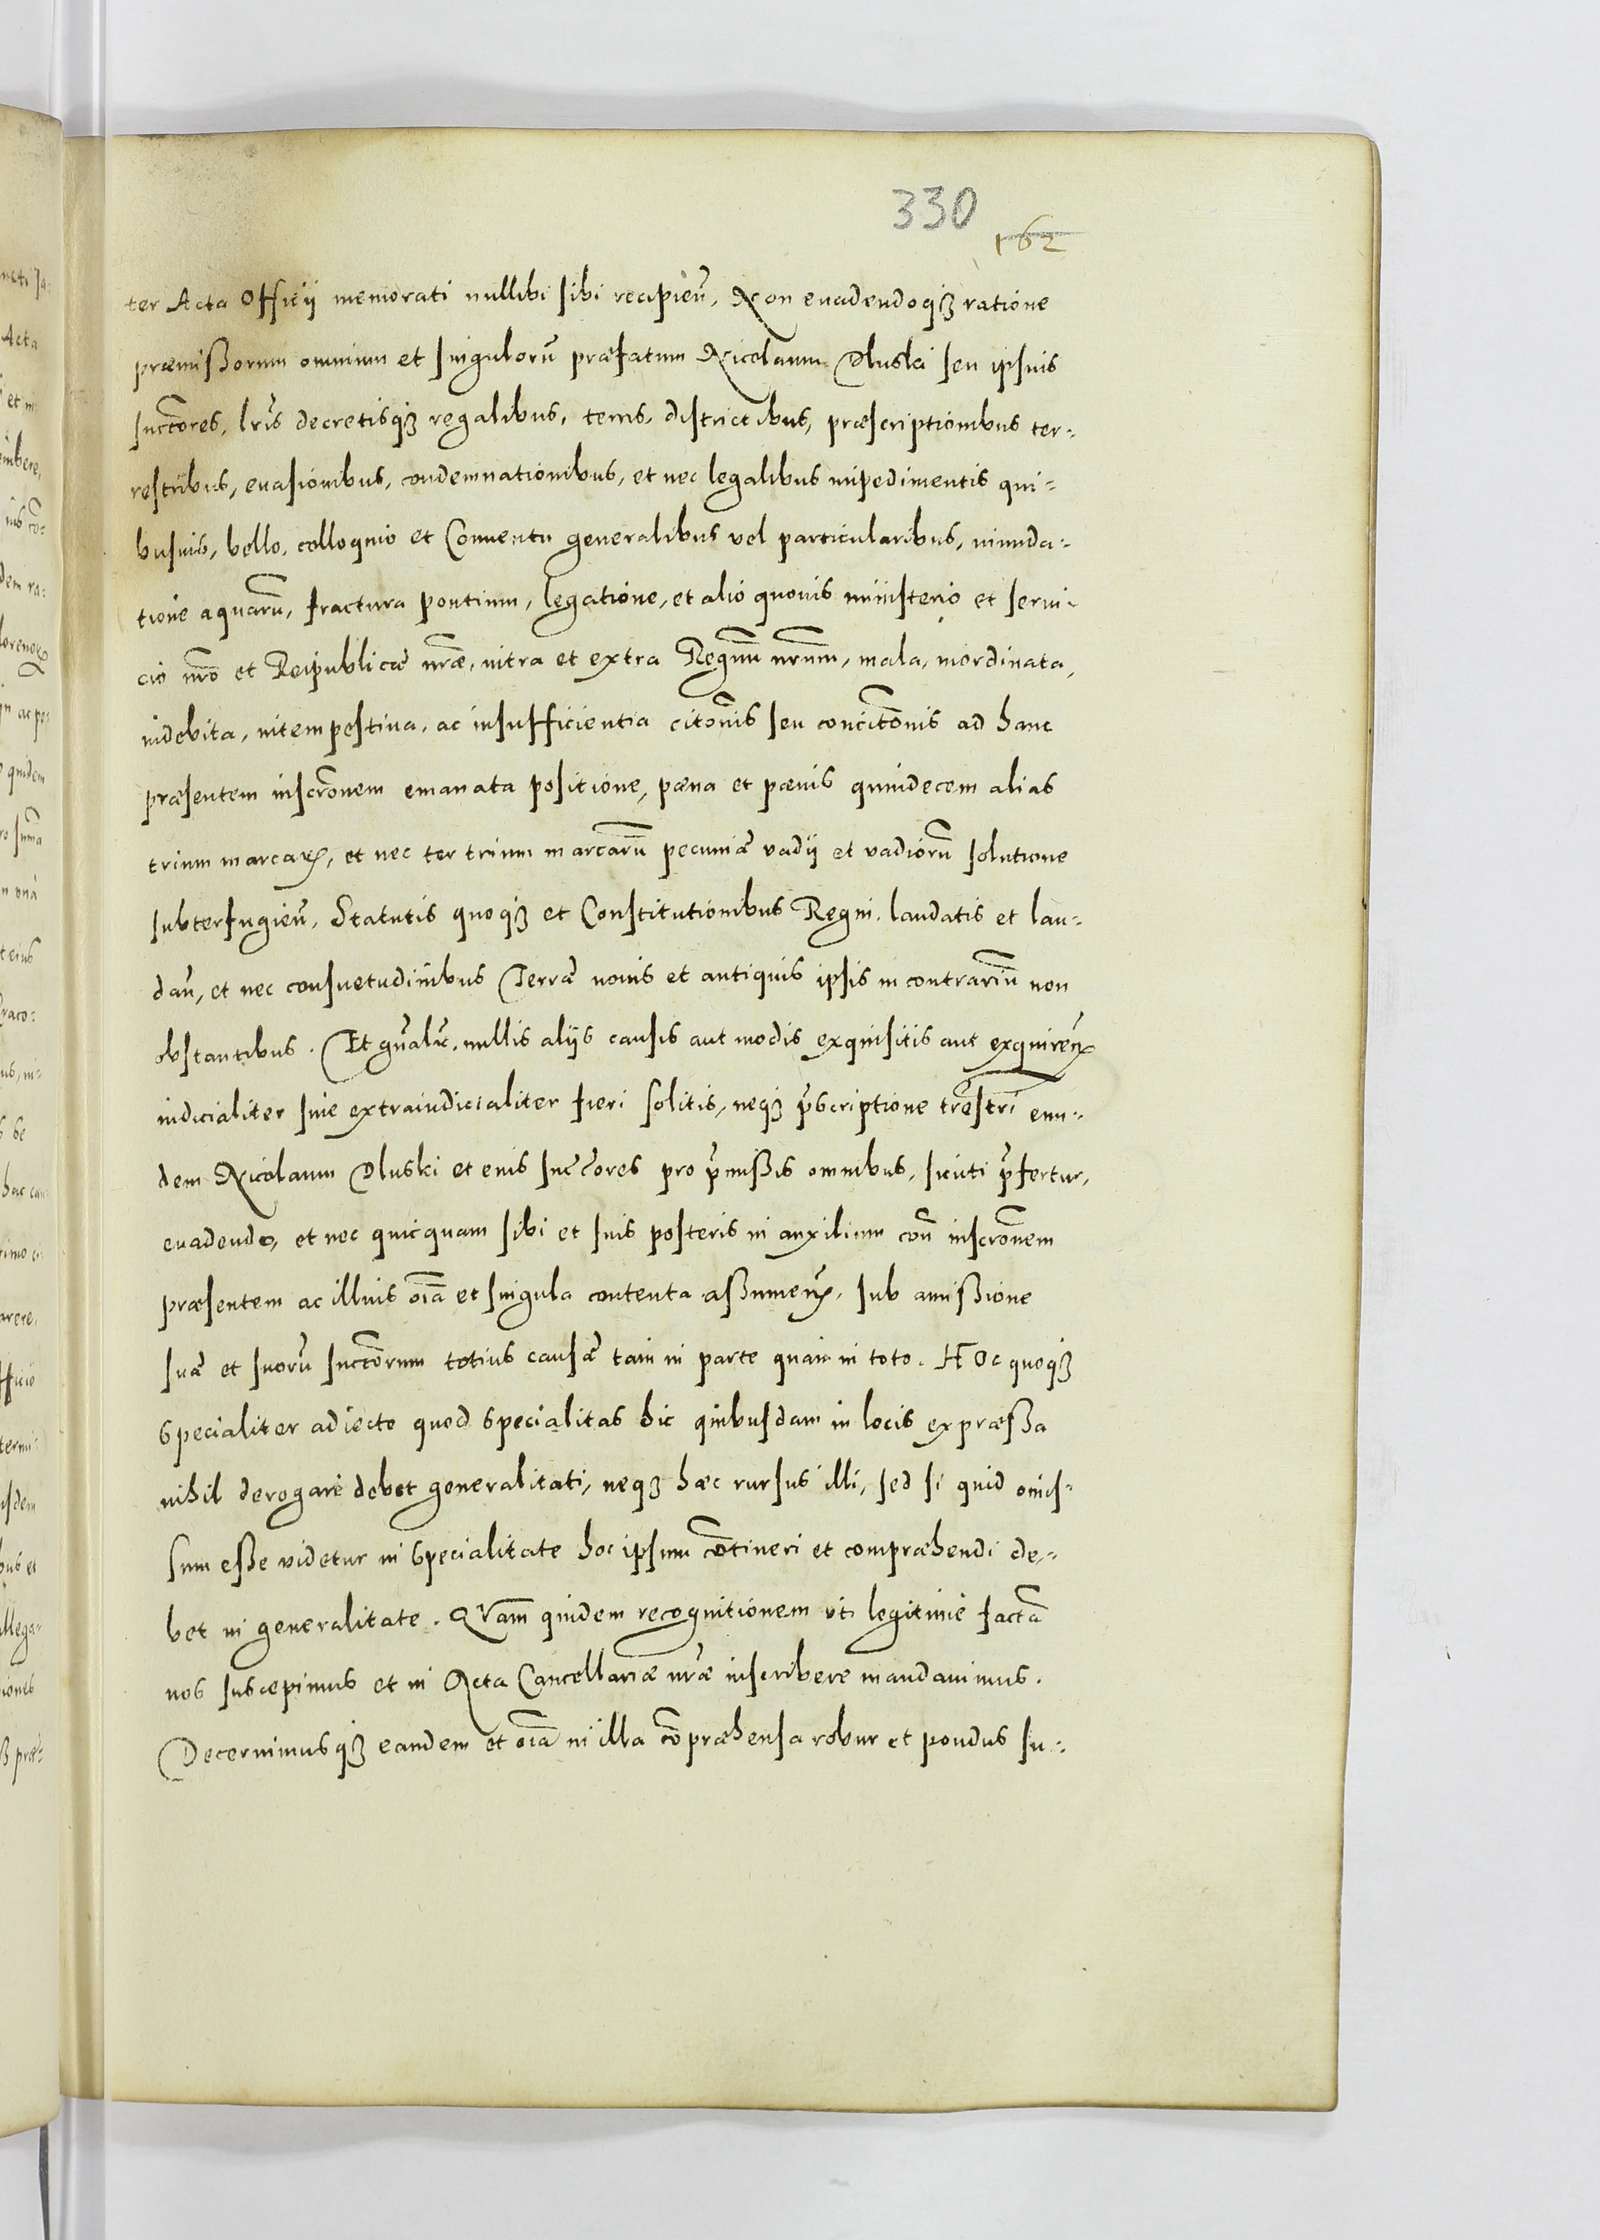 330
162
ter Acta Officij memorati nullibi sibi recipień, Non euadendoqȝ ratione
præmißorum omnium et singulorũ præfatum Nicolaum Dluski seu ipsius
succ̃ores, lr̃is decretisqȝ regalibus, terris, districtibus, præscriptionibus ter-
restribus, euasionibus, condemnationibus, et nec legalibus impedimentis qui-
busuis, bello, colloquio et Conuentu generalibus vel particularibus, innunda-
tione aquarũ, fractura pontium, legatione, et alio quouis ministerio et serui-
cio nr̃o et Reipublicæ nr̃æ, intra et extra Regnũ nr̃um, mala, inordinata,
indebita, intempestiua, ac insufficientia citõnis seu concitõnis ad hanc
præsentem inscrõnem emanata positione, pæna et pænis quindecem alias
trium marcarꝝ, et nec ter trium marcarũ pecuniæ vadij et vadiorũ solutione
subterfugień, Statutis quoqȝ et Constitutionibus Regni, laudatis et lau-
dań, et nec consuetudinibus Terræ nouis et antiquis ipsis in contrariũ non
obstantibus. Et gñalr̃, nullis alijs causis aut modis exquisitis aut exquireñ
iudicialiter siue extraiudicialiter fieri solitis, neqȝ p̃scriptione tr̃estri eun-
dem Nicolaum Dluski et eius succ̃ores pro p̃mißis omnibus, sicuti p̃fertur,
euadendo, et nec quicquam sibi et suis posteris in auxilium coñ inscrõnem
præsentem ac illius oĩa et singula contenta aßumeñ, sub amißione
suæ et suorũ succ̃orum totius causæ tam in parte quam in toto. HOc quoqȝ
specialiter adiecto quod specialitas hic quibusdam in locis expræßa
nihil derogare debet generalitati, neqȝ hæc rursus illi, sed si quid omis-
sum eße videtur in specialitate hoc ipsum cõtineri et compræhendi de-
bet in generalitate. QVam quidem recognitionem vti legitimè factã
nos suscepimus et in Acta Cancellariæ nr̃æ inscribere mandauimus.
Decernimusqȝ eandem et oĩa in illa cõpræhensa robur et pondus su-